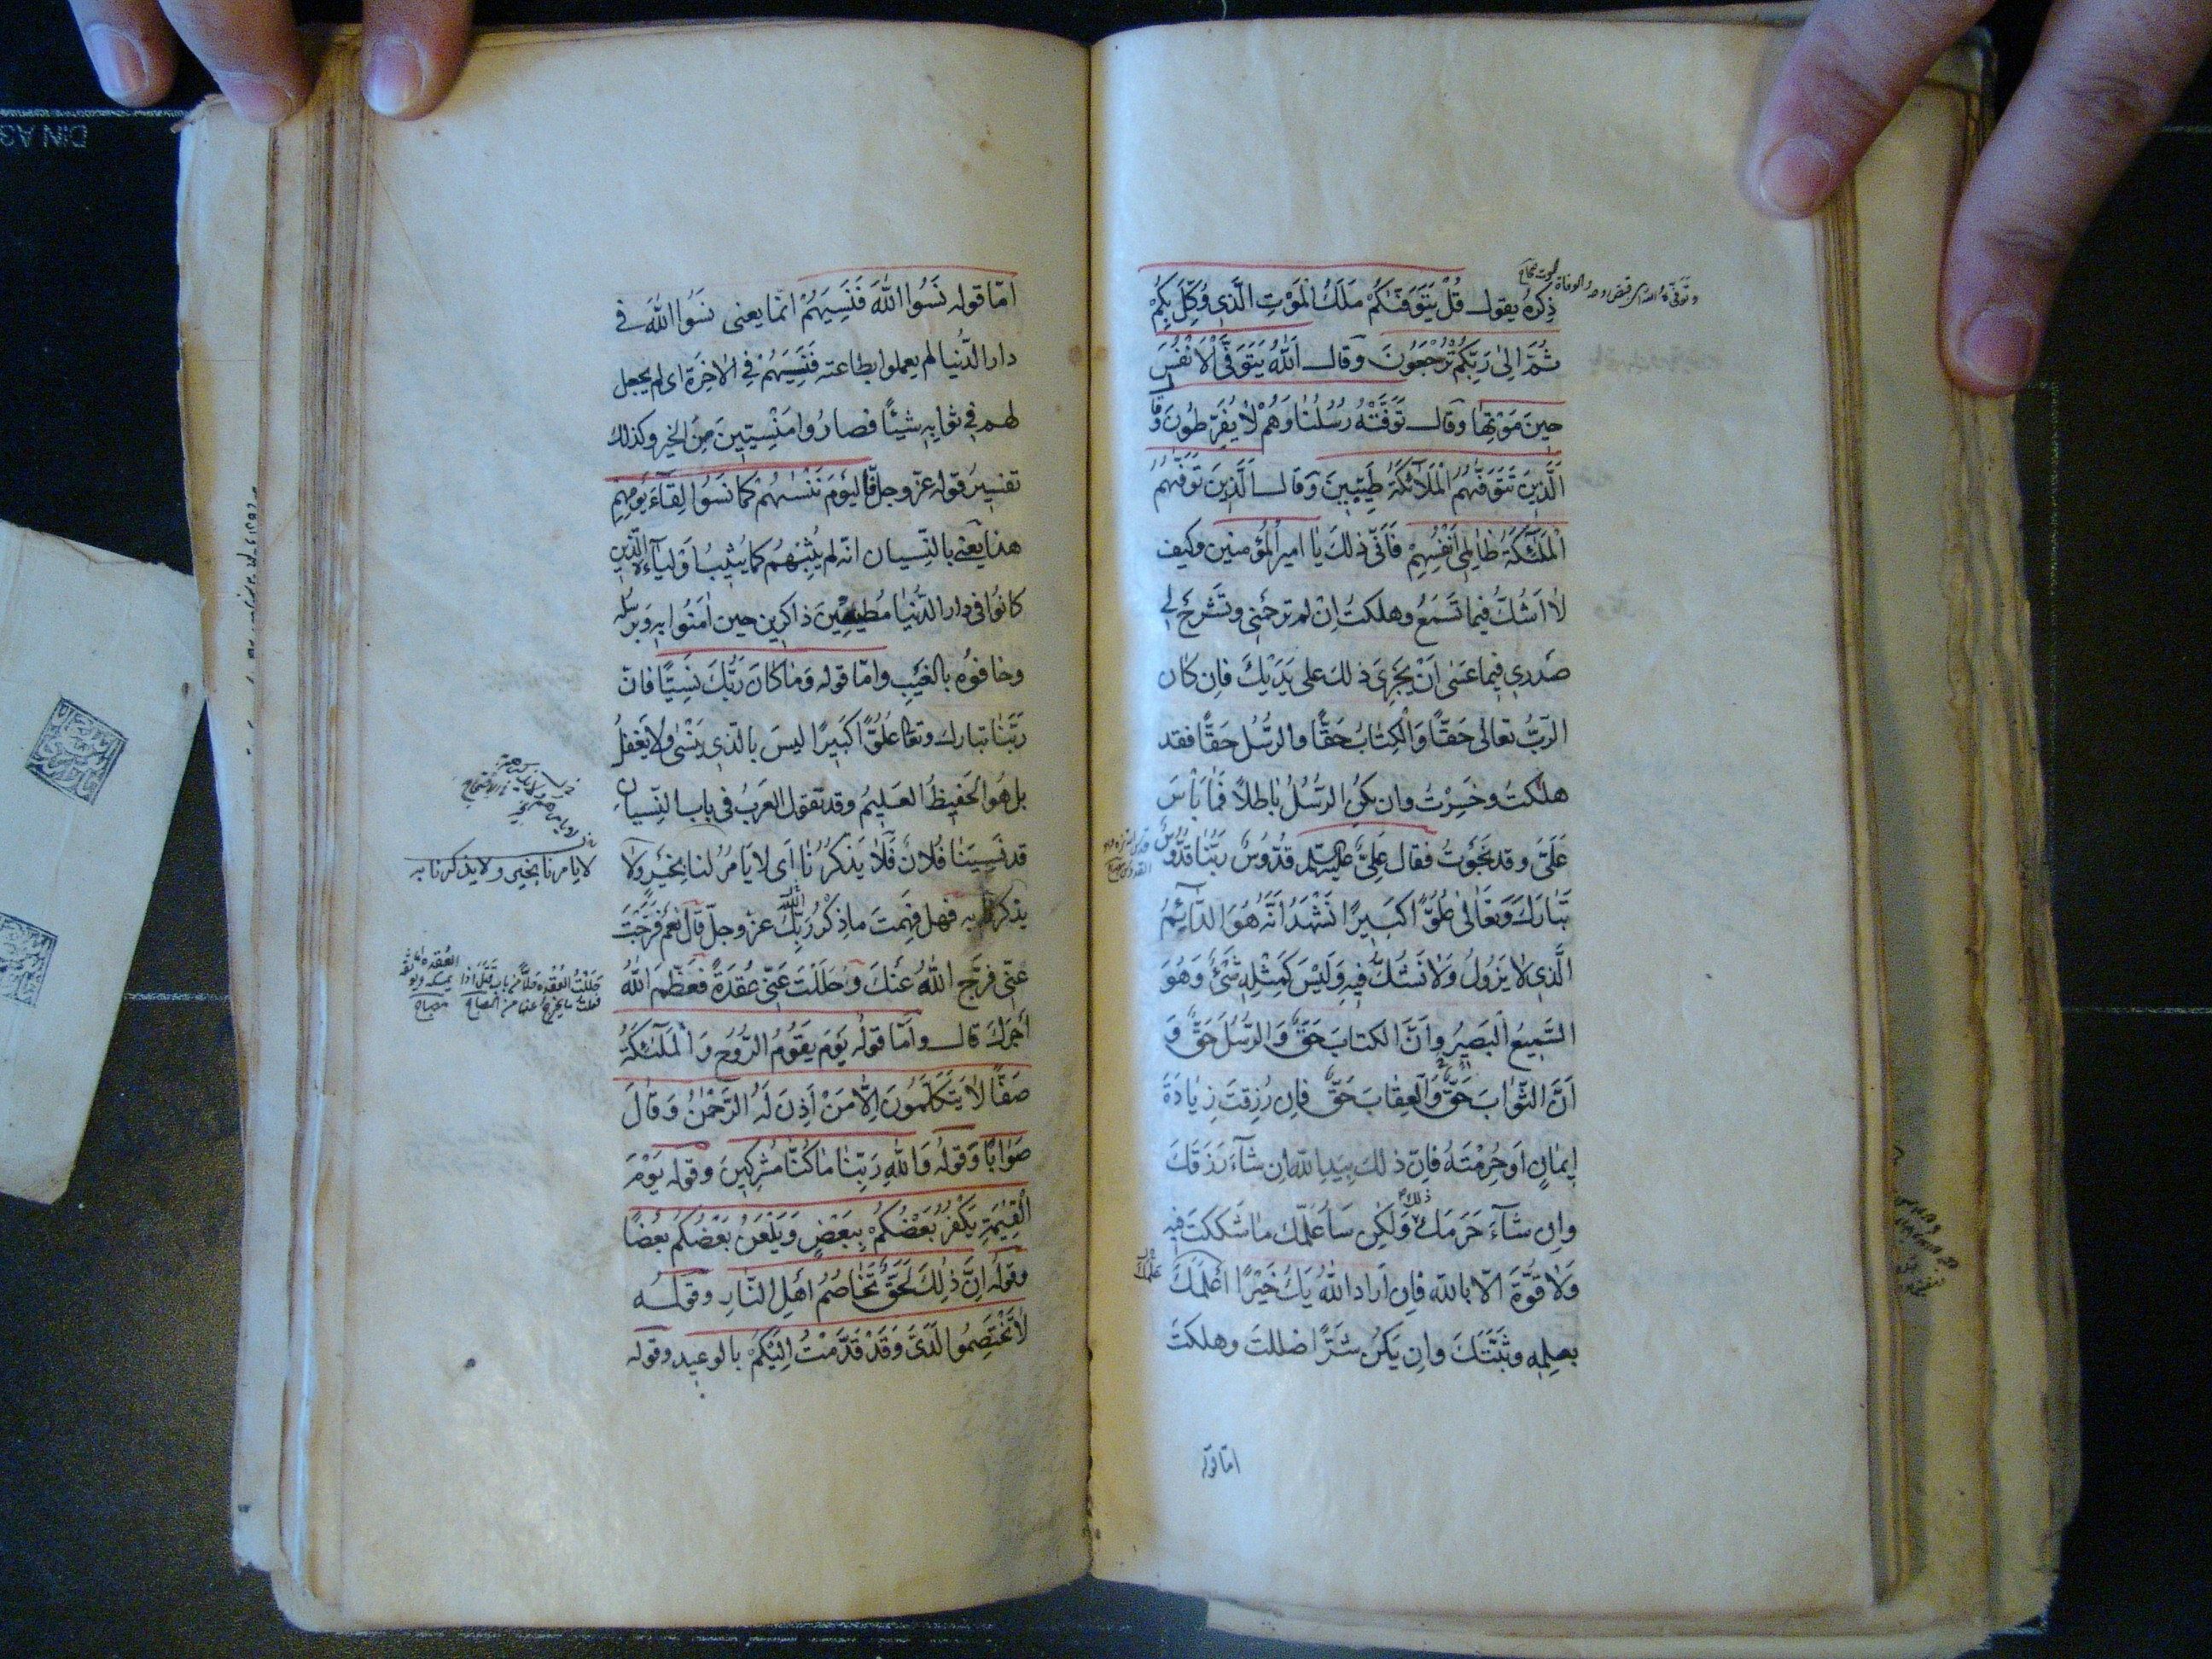 ذِكْرُهُ يقول قُلْ يَتَوَفّٰىكُمْ مَلَكُ الْمَوْتِ الَّذِى وُكِّلَ بِكُمْ
ثُمَّ اِلىٰ رَبِّكُمْ تُرْجَعُونَ وقال اَللهُ يَتَوَفَّى الْاَنْفُسَ
حِينَ مَوْتِهٰا وقال تَوَفَّتْهُ رُسُلُنٰا وَهُمْ لٰا يُفَرِّطُونَ وقا
الَّذِينَ تَتَوَفّٰيهُمُ الْمَلَائِكَةُ طَيِّبِينَ وَقَال الَّذِينَ تَتَوَفّٰيهُمُ
الْمَلٰئِكَةُ ظٰالِمِى اَنْفُسِهِمْ فَاَنّٰى ذلكَ يٰا امير المؤمنين وكيف
لٰا اَشُكُّ فيما تَسْمَعُ وهلكتُ اِنْ لم ترحمْنى وتَشْرَحْ لى
صَدْرى فيما عَسٰى اَنْ يَجْرِىَ ذلكَ على يَدَيْكَ فاِن كان
الرّبُّ تعالى حَقّاً وَالْكِتٰابُ حَقًّا والرُّسُل حَقًّا فقد
هلكتُ وخَسِرْتُ وان تكن الرُّسُلُ بٰاطلاً فَمٰا بَأْسَ
عَلَىَّ وقد نَجَوْتُ فقال عَلِىٌّ عليه السلام قُدُّوسٌ رَبُّنٰا قُدُّوسٌ
تَبٰارَكَ وَتَعٰالىٰ عُلُوًّا كَبيرًا نَشْهَدُ اَنَّهُ هُوَ الدّٰائِمُ
الَّذِى لا يَزُولُ وَلٰا نَشُكُّ فيهِ وَلَيْسَ كَمِثْلِهِ شَىْءٌ وَهُوَ
السَّمِيعُ الْبَصِيرُ وَاَنَّ الكتابَ حَقٌّ وَالرُّسُلَ حَقٌّ وَ
اَنَّ الثَّوٰابَ حَقٌّ وَالْعِقٰابَ حَقٌّ فاِن رُزِقتَ زِيٰادَةَ
اِيمٰانٍ اَوْ حُرِمْتَهُ فَاِنّ ذلكَ بِيَدِ الله اِن شٰاءَ رَزَقَكَ
واِن شٰاءَ حَرَمَكَ ذلك وَلٰكِن سَاُعَلِّمُكَ مٰا شَكَكْتَ فيهِ
وَلٰا قُوَّةَ الّا بالله فاِن اَرادَ اللهُ بِكَ خَيْرًا اَعْلَمَكَ
بعلمهِ وثَبَّتَكَ واِن يَكُنْ شَرًّا ضللتَ وهلكتَ
اما قوله
امّا قوله نَسُوا اللهَ فَنَسِيَهُمْ انّما يعنى نسَوُا اللهَ فى
دار الدُّنيا لم يعملوا بطاعته فَنَسِيَهُمْ فِى الْاٰخِرَة اى لم يجعل
لهم فى ثوابهِ شيئًا فصارُوا مَنْسِيّينَ مِنَ الخير وكذلك
تفسيرُ قوله عزّ وجلّ فَالْيَوْمَ نَنْسٰيهُمْ كَمٰا نَسُوا لِقٰاءَ يَوْمِهِمْ
هذا يَعْنى بالنّسيان انّه لم يُثِبْهُم كما يُثيبُ اَوْلياءه الّذين
كانُوا فى دار الدُّنيٰا مُطيعينَ ذاكرين حين اٰمَنُوا بهِ وَبرُسُلِه
وخافوُه بالغَيْبِ وامّا قوله وَمٰا كٰانَ رَبُّكَ نَسِيًّا فانّ
رَبَّنٰا تبارك وتعالى عُلُوًّا كَبيرًا ليسَ بالّذى يَنْسٰى ولٰا يَغْفلُ
بل هُوَ الحَفيظُ العَليمُ وقد تقول العَرَبُ فى باب النِّسيان
قد نَسِيَنٰا فُلانٌ فَلٰا يَذْكُرُنٰا اَى لا يَأمُرُ لنا بِخَيْرٍ ولا
يذكرنا به فهل فَهِمتَ ما ذكَرَ الله رَبُّكَ عزّ وجلّ قالَ نعم فَرَّجْتَ
عَنّى فرّجَ اللهُ عَنْكَ وَحَلَلْتَ عَنّى عُقدَةً فَعَظَّمَ اللهُ
اَجْرَكَ قال وامّا قولُه يَوْمَ يَقُومُ الرُّوحُ وَالْمَلٰئِكَةُ
صَفًّا لٰا يَتَكَلَّمُونَ اِلّٰا مَنْ اَذِنَ لَهُ الرَّحْمٰنُ وَقٰالَ
صَوٰابًا وَقولُه وَاللهِ رَبِّنٰا مٰا كُنّٰا مُشْرِكِينَ وقوله يَوْمَ
الْقِيٰمَةِ يَكْفُرُ بَعْضُكُمْ بِبَعْضٍ وَيَلْعَنُ بَعْضُكُمْ بَعْضًا
وقولُه اِنَّ ذٰلِكَ لَحَقٌّ تَخٰاصُمُ اَهْلِ النّٰارِ وقولُه
لٰا تَخْتَصِمُوا لَدَىَّ وَقَدْ قَدَّمْتُ اِلَيْكُمْ بالوعيد وقوله
لا يأمرنا بخير ولا يذكرنا به